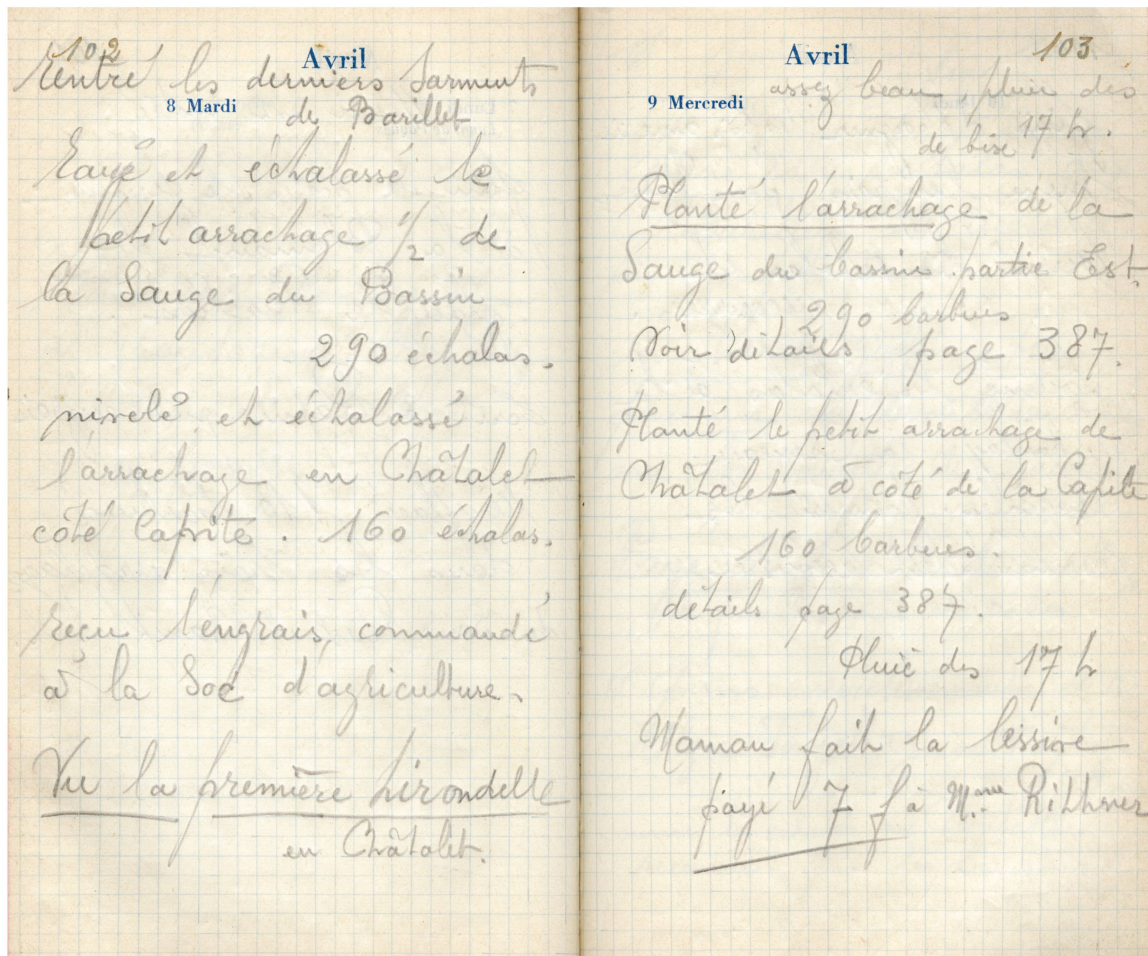 102
Avril
Rentré les derniers sarments
8 Mardi
de Barillet
Rayé et échalassé le
petit arrachage 1/2 de
la Sauge du Bassin
290 échalas.
nivelé et échalassé
l'arrachage en Châtalet
côté Capite. 160 échalas.
reçu l'engrais, commandé
à la Soc d'agriculture.
Vu la première hirondelle
en Châtalet.
Avril
103
9 Mercredi
assez beau, pluie dès
de bise 17 h.
Planté l'arrachage de la
Sauge du bassin partie Est.
290 barbues
Voir détails page 387.
Planté le petit arrachage de
Châtalet à côté de la Capite
160 barbues.
détails page 387.
Pluie dès 17 h
Maman fait la lessive
payé 7 f à Mme